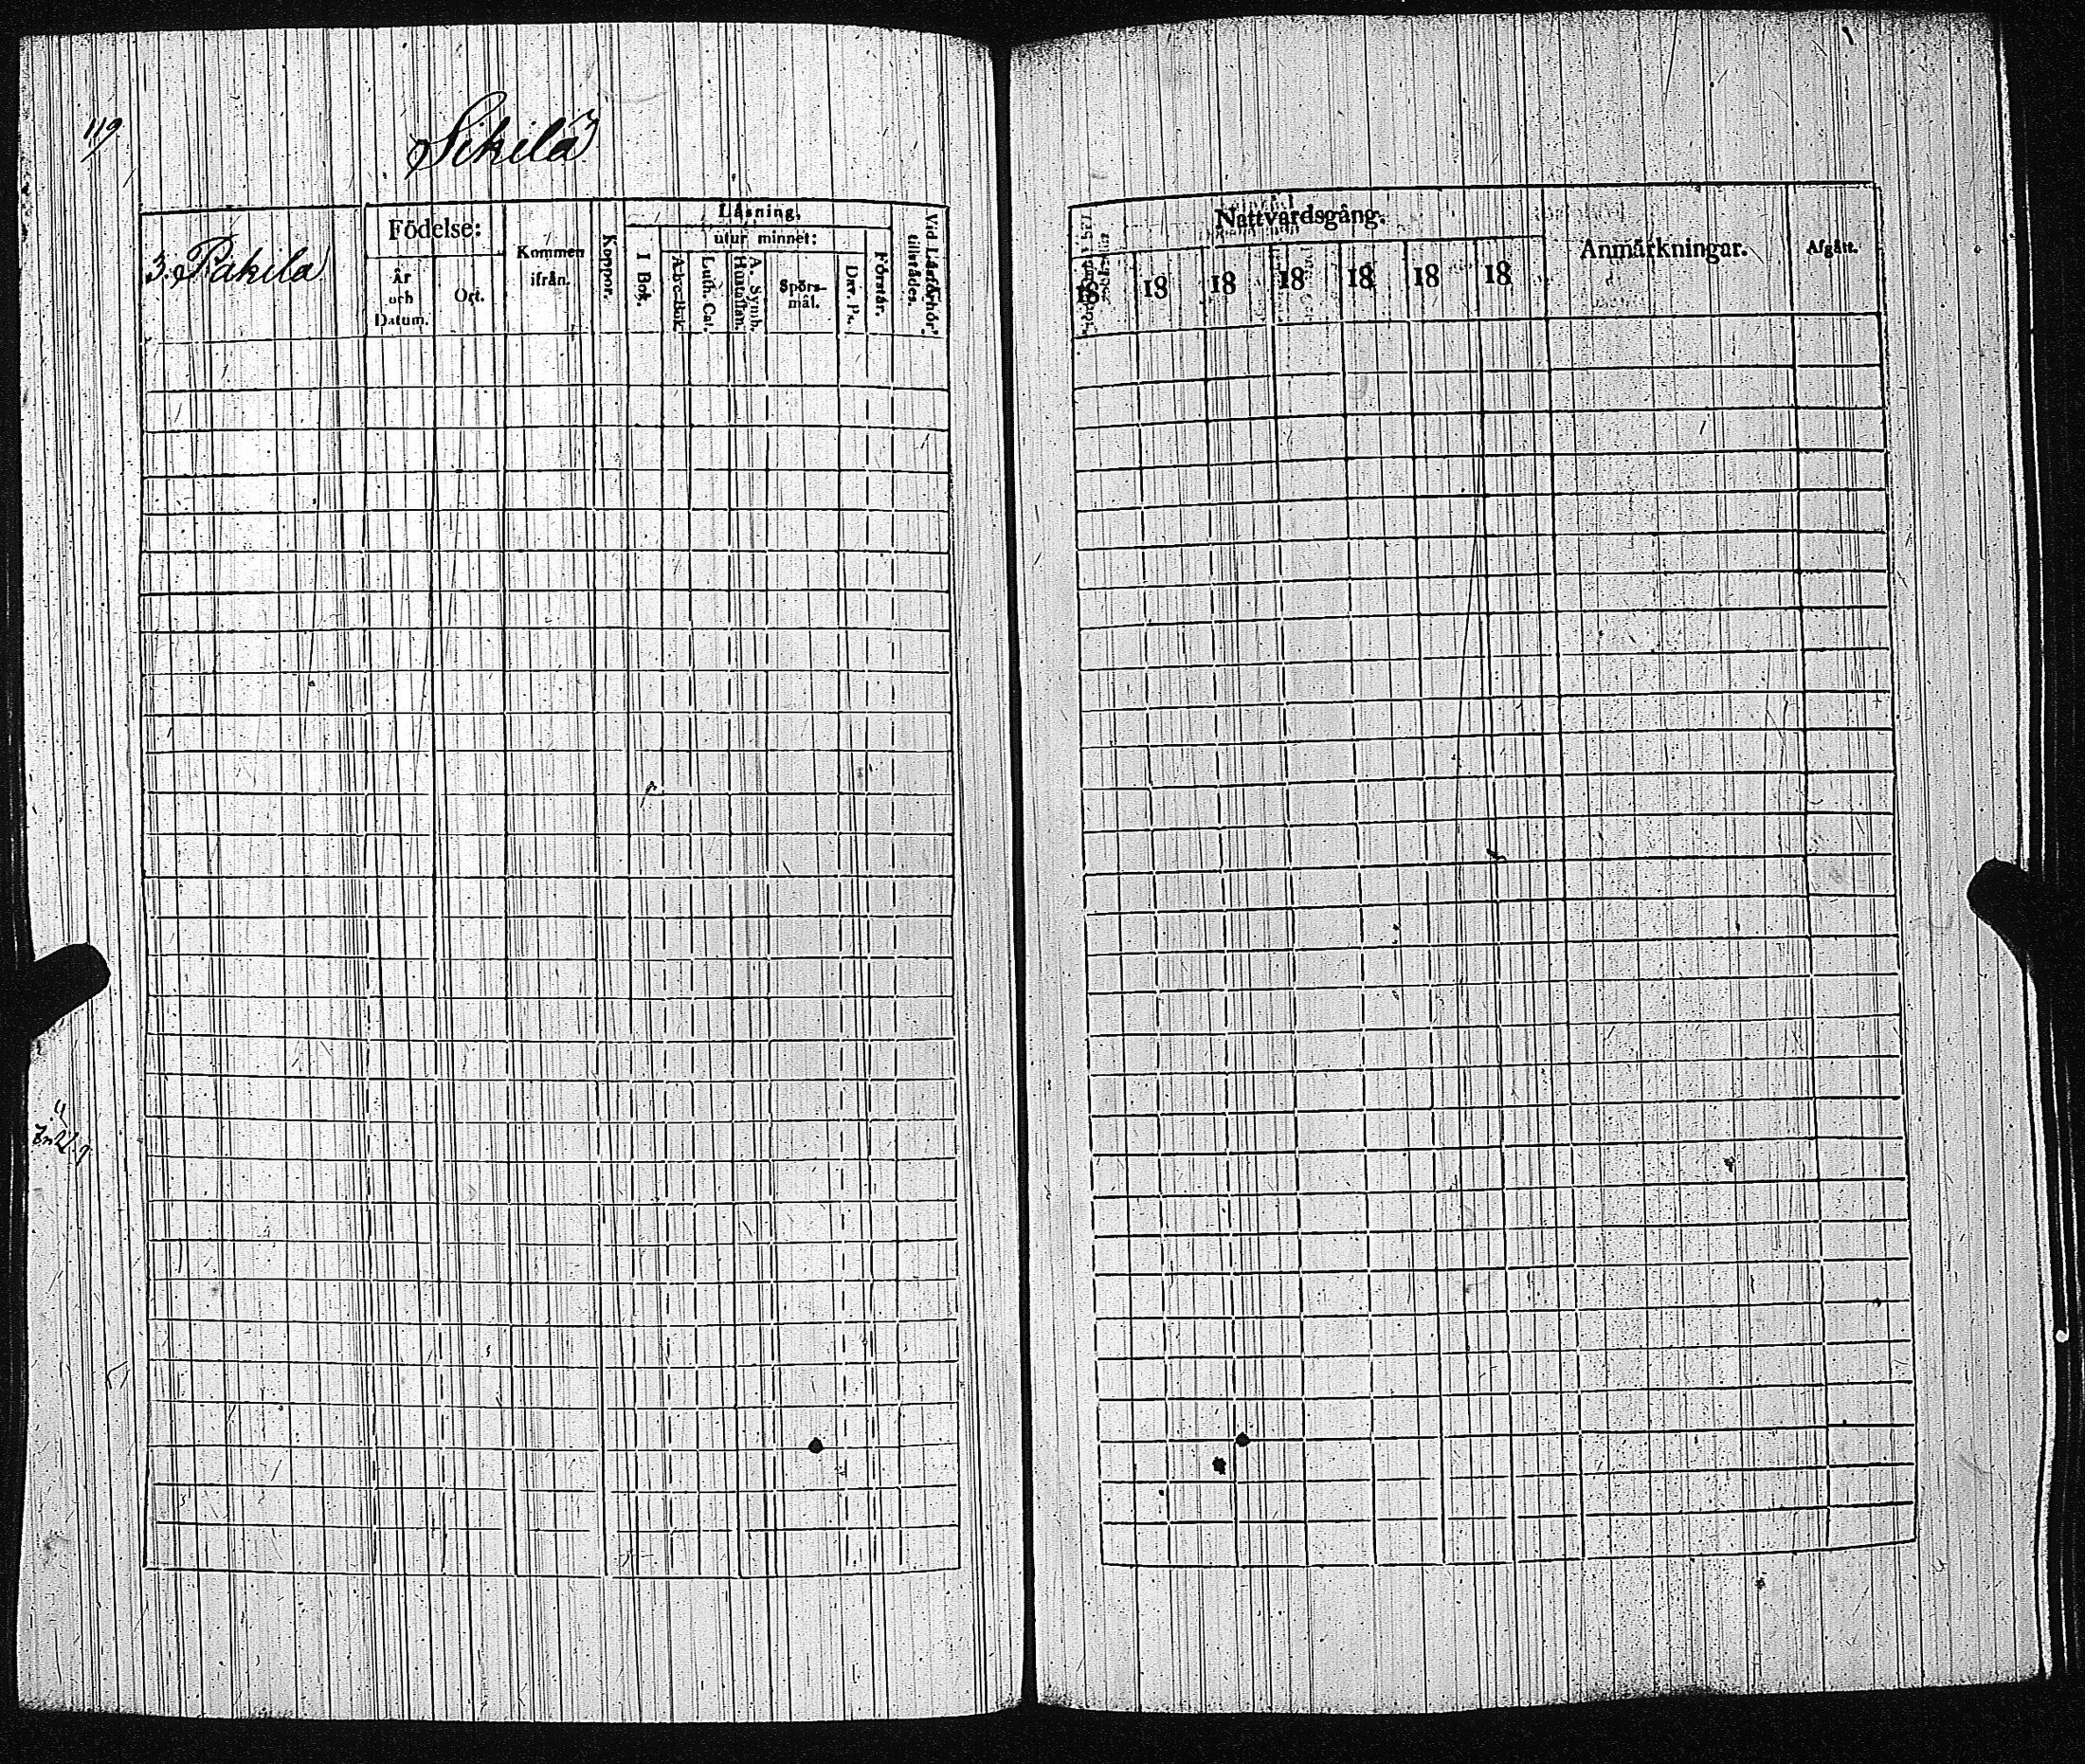 119
Sikilä
3. Pakila
Födelse:
År
och
Datum.
Ort.
Kommen
ifrån.
Koppor.
Läsning,
utur minnet:
I Bok.
A-b-c-Bok.
Luth. Cat.
A. Symb.
Hustaflan.
Spörs-
mål.
Dav. Ps.
Förstår.
Vid Läsförhör
tillstädes.
Nattvardsgång.
18 18 18 18 18 18 18
Anmärkningar.
Afgått.